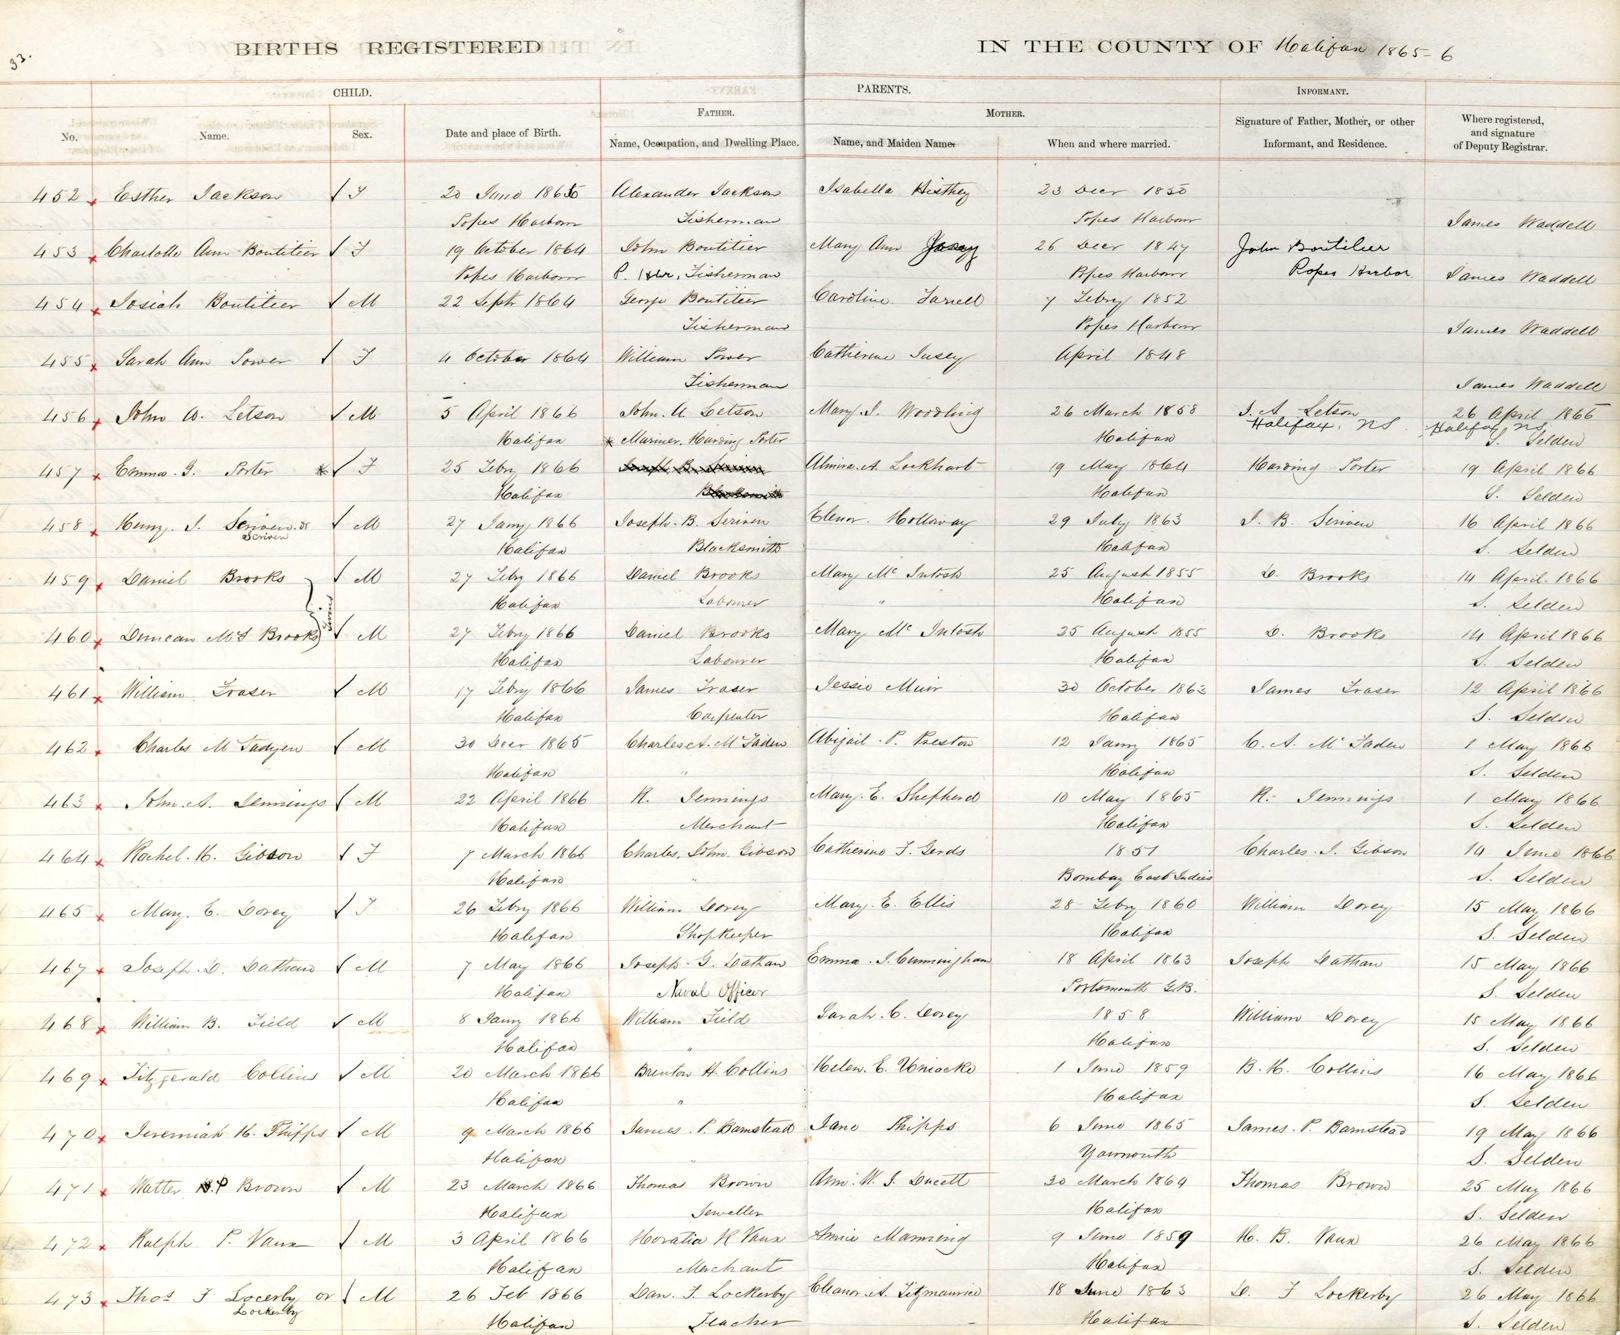 33.
BIRTHS REGISTERED IN THE COUNTY OF Halifax 1865-6
CHILD. PARENTS. INFORMANT.
FATHER. MOTHER.
No. Name. Sex. Date and place of Birth. Name, Occupation, and Dwelling Place. Name, and Maiden Name. When and where married. Signature of Father, Mother, or other Informant, and Residence. Where registered, and signature of Deputy Registrar.
452 Esther Jackson F 20 June 1865 Alexander Jackson Isabella 23 Decr 1850
Popes Harbour Fisherman Popes Harbour James Waddell
453 Charlotte Ann Boutilier F 19 October 1864 John Boutilier Mary Ann 26 Decr 1847 John Boutilier
Popes Harbour P. Hbr, Fisherman Popes Harbour Popes Harbor James Waddell
454 Josiah Boutilier M 22 Sept 1864 George Boutilier Caroline Farrell 7 Febry 1852
Fisherman Popes Harbour James Waddell
455 Sarah Ann Power F 4 October 1864 William Power Catherine April 1848
Fisherman James Waddell
456 John W. Letson M 5 April 1866 John A Letson Mary J. Woodling 26 March 1858 J. A Letson 26 April 1866
Halifax * Mariner. Harding Porter Halifax Halifax, NS. Halifax NS S. Selden
457 Emma G. Porter * F 25 Febry 1866 Joseph B. Scriven Almira A Lockhart 19 May 1864 Harding Porter 19 April 1866
Halifax Blacksmith Halifax S. Selden
458 Henry J. Scriven or M 27 Jany 1866 Joseph B. Scriven Elenor Hollaway 29 July 1863 J. B. Scriven 16 April 1866
Scriven Halifax Blacksmith Halifax S. Selden
459 Daniel Brooks M 27 Febry 1866 Daniel Brooks Mary McIntosh 25 August 1855 D. Brooks 14 April 1866
Twins Halifax Labourer " Halifax S. Selden
460 Duncan McI Brooks M 27 Febry 1866 Daniel Brooks Mary McIntosh 25 August 1855 D. Brooks 14 April 1866
Halifax Labourer Halifax S. Selden
461 William Fraser M 17 Febry 1866 James Fraser Jessie Muir 30 October 1863 James Fraser 12 April 1866
Halifax Carpenter Halifax S. Selden
462 Charles McFadyen M 30 Decr 1865 Charles A. McFaden Abigail P. Preston 12 Jany 1865 C. A. McFaden 1 May 1866
Halifax " Halifax S. Selden
463 John A. Jennings M 22 April 1866 R. Jennings Mary E. Shepherd 10 May 1865 R. Jennings 1 May 1866
Halifax Merchant Halifax S. Selden
464 Rachel H. Gibson F 7 March 1866 Charles John Gibson Catherine F. Gerds 1851 Charles J. Gibson 14 June 1866
Halifax " Bombay East Indies S. Selden
465 Mary E. Dorey F 26 Febry 1866 William Dorey Mary E. Ellis 28 Febry 1860 William Dorey 15 May 1866
Halifax Shopkeeper Halifax S. Selden
467 Joseph D. Dathan M 7 May 1866 Joseph G. Dathan Emma J. Cunningham 18 April 1863 Joseph Dathan 15 May 1866
Halifax Naval Officer Portsmouth G.B. S. Selden
468 William B. Field M 8 Jany 1866 William Field Sarah C. Dorey 1858 William Dorey 15 May 1866
Halifax " Halifax S. Selden
469 Fitzgerald Collins M 20 March 1866 Brenton H. Collins Helen E. Uniacke 1 June 1859 B. H. Collins 16 May 1866
Halifax " Halifax S. Selden
470 Jeremiah H. Phipps M 9 March 1866 James P. Bamstead Jane Phipps 6 June 1865 James P. Bamstead 19 May 1866
Halifax " Yarmouth S. Selden
471 Walter P Brown M 23 March 1866 Thomas Brown Ann W. J. 30 March 1864 Thomas Brown 25 May 1866
Halifax Jeweller Halifax S. Selden
472 Ralph P. Vaux M 3 April 1866 Horatia R Vaux Annie Manning 9 June 1859 H. B. Vaux 26 May 1866
Halifax Merchant Halifax S. Selden
473 Thos F Locerby or M 26 Feb 1866 Dan. F. Lockerby Eleanor A. Fitzmaurice 18 June 1863 D. F Lockerby 26 May 1866
Lockerby Halifax Teacher Halifax S. Selden